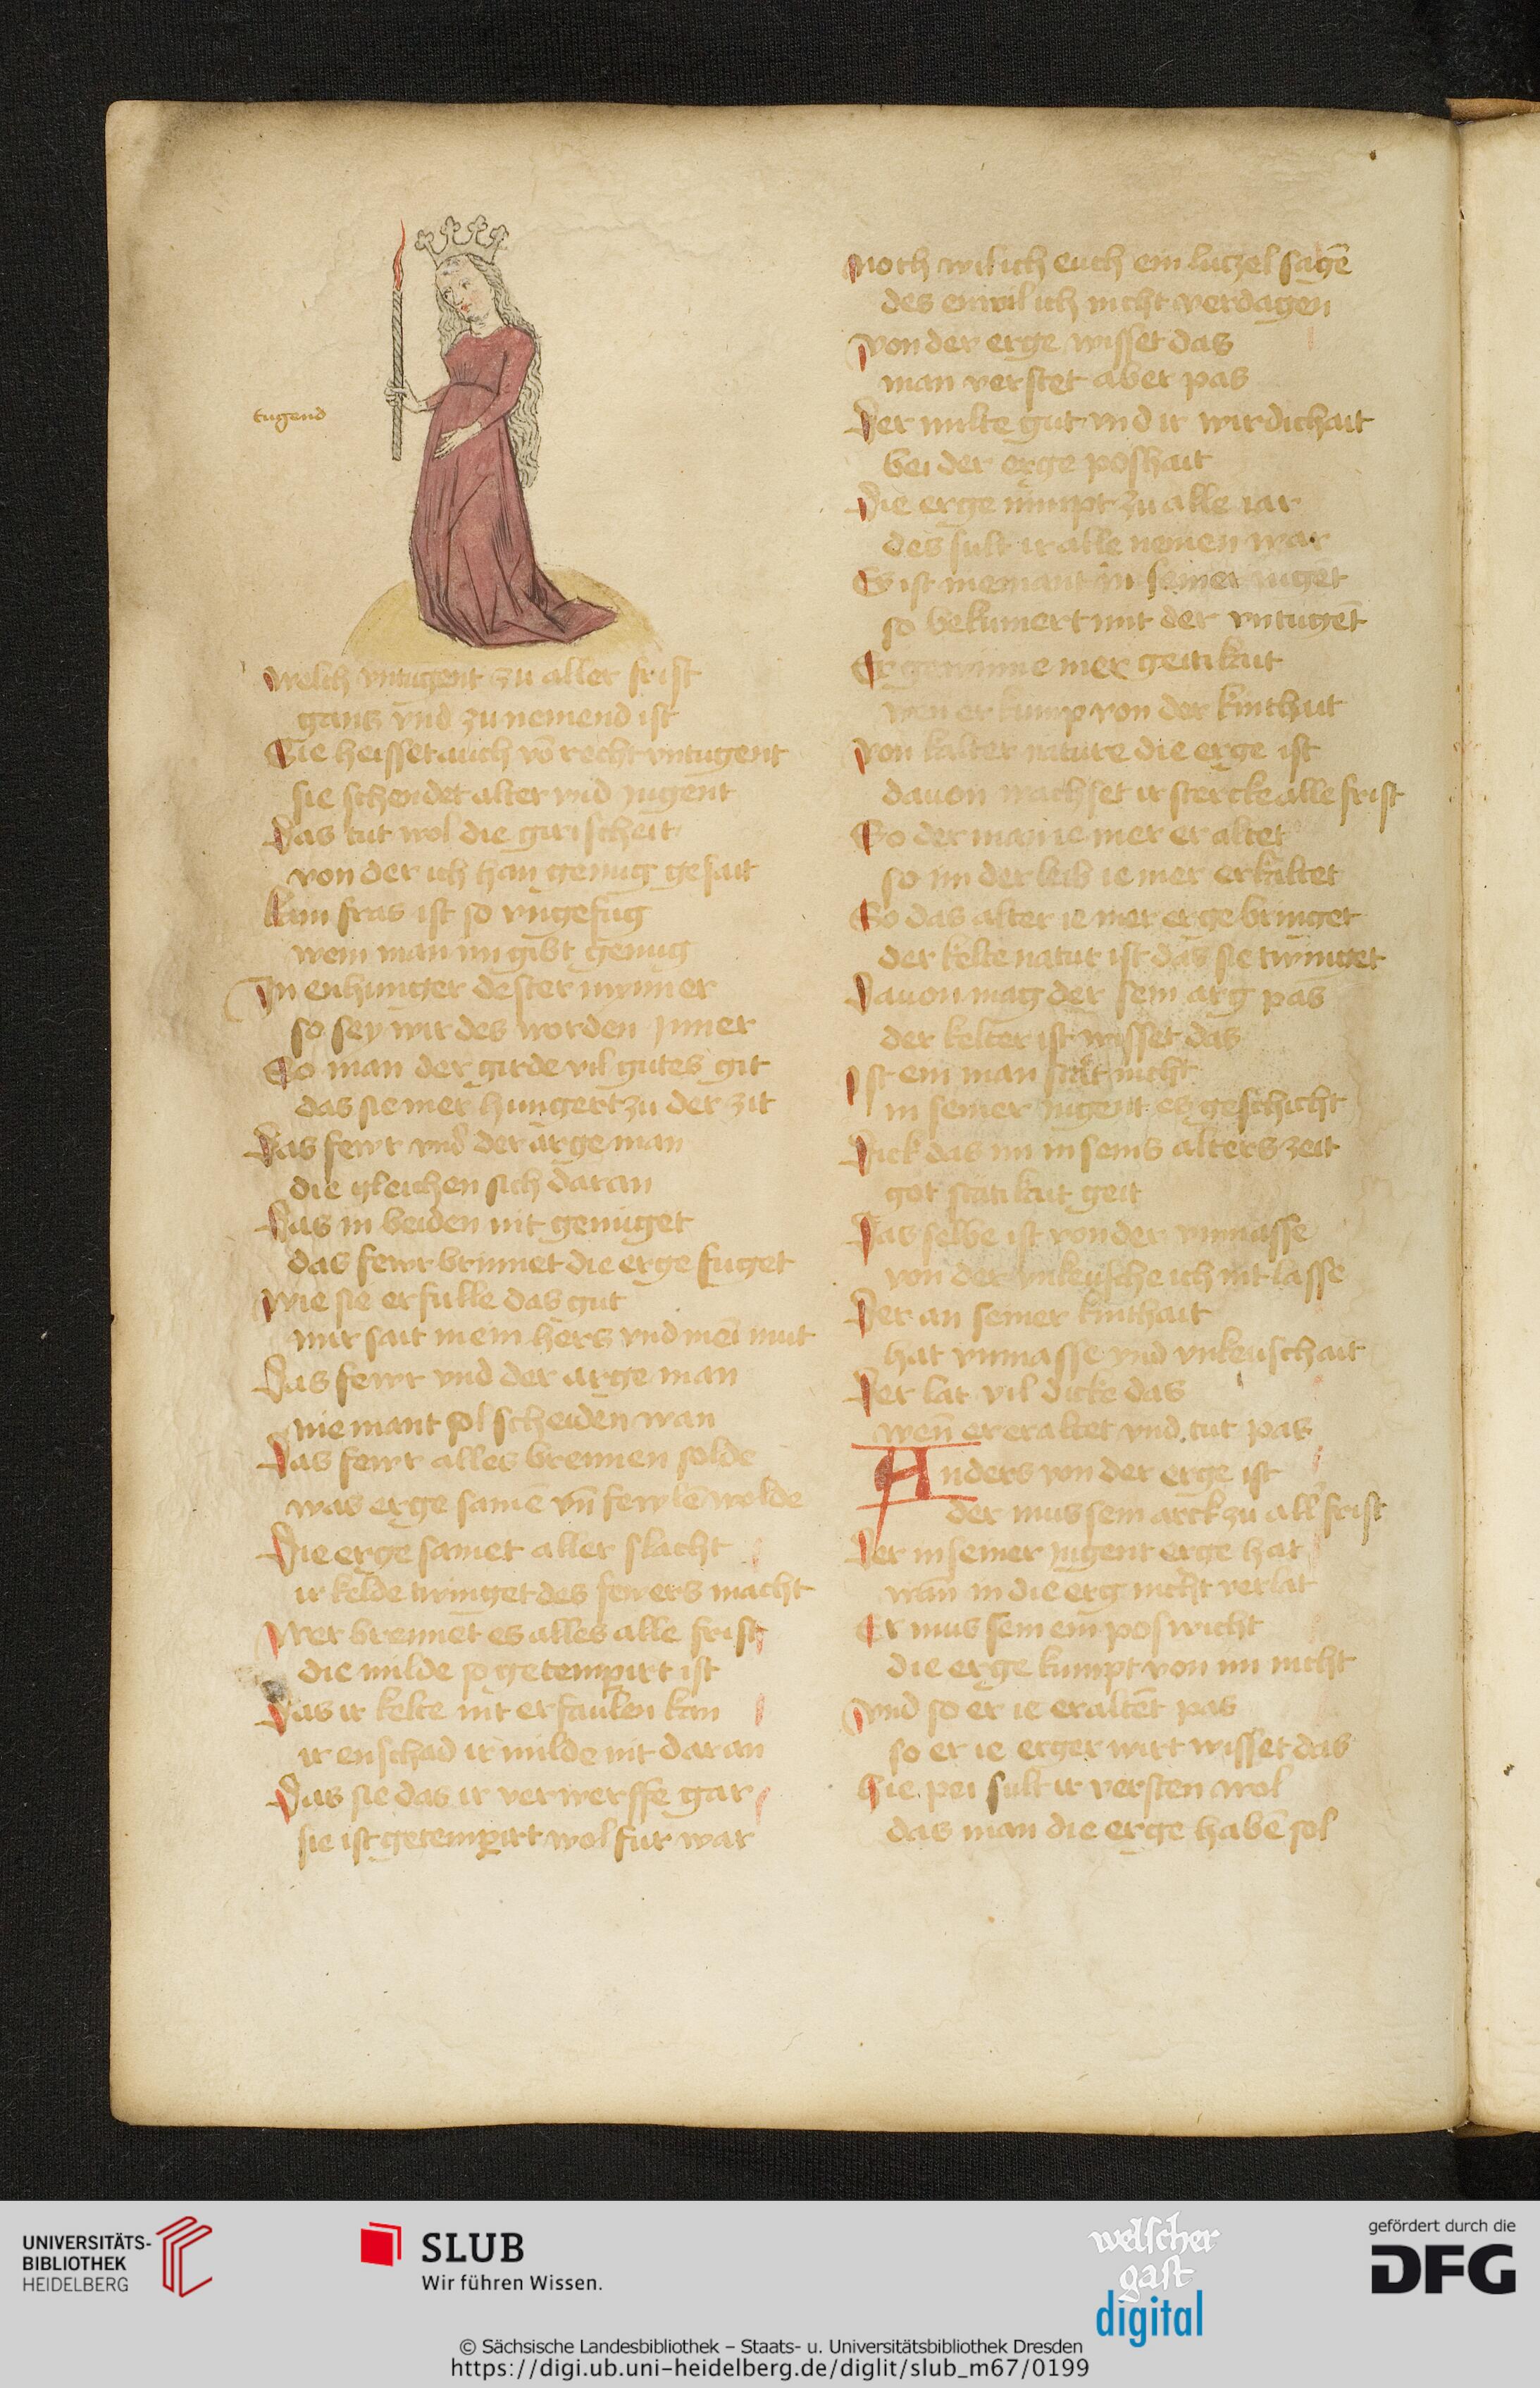 tugend
welich vntugent zu aller frist
gantz vnd zu nemend ist
Sie heisset auch vō recht vntugent
sie schendet alter vnd jugent
Das tut wol die girischeit
von der ich han genug gesait
kain fras ist so vngefug
wem man im gibt genug
Jn enhunger dester mynner
so sey wir des worden jnner
So man der girde vil gutes git
das sie mer hungert zu der zit
Das fewr vnd der arge man
die gleichen sich daran
Das in beiden nit genuget
das fewr brinnet die erge fuget
Wie sie erfulle das gut
mir sait mein hers vnd mei mut
Das fewr vnd der arge man
niemant sol scheiden wan
Das fewr alles brennen solde
was erge samē vn̄ fewlē wolde
Die erge samet aller slacht
ir kelde twinget des fewers macht
Wer brennet es alles alle frist
die milde so getempirt ist
Das ir kelte nit erfaulen kan
ir enschad ir milde nit daran
Das sie das ir verwerffe gar
sie ist getempirt wol fur war
Noch wil ich euch ein luczel sagē
des enwil ich nicht verdagen
Von der erge wisset das
man verstet aber pas
Der milte gut vnd ir wirdichait
bei der erge poshait
Die erge nimpt zu alle iar
des sult ir alle nemen war
Es ist niemant in seiner iuget
so bekumert mit der vntugēt
Er gewinne mer geitikait
wen er kump von der kinthait
Von kalter nature die erge ist
dauon wachset ir stercke alle frist
So der man ie mer er altet
so im der leib ie mer erkaltet
So das alter ie mer erge bringet
der kelte natur ist das sie twinget
Dauon mag der sein arg pas
der kelter ist wisset das
Ist ein man stat nicht
in seiner jugent es geschicht
Dick das im in seins alters zeit
got statikait geit
Das selbe ist von der vnmasse
von der vnkeusche ich nit lasse
Der an seiner kinthait
hat vnmasse vnd vnkeuschait
Der lat vil dicke das
wen̄ er eraltet vnd tut pas
Anders von der erge ist
der mus sein arck zu all frist
Der in seiner jugent erge hat
wan̄ in die erg nicht verlat
Er mus sein ein poswicht
die erge kumpt von im nicht
Vnd so er ie eraltet pas
so er ie erger wirt wisset das
Hie pei sult ir versten wol
das man die erge habē sol
UNIVERSITÄTS-
BIBLIOTHEK
HEIDELBERG
SLUB
Wir führen Wissen.
welscher
gast
digital
gefördert durch die
DFG
© Sächsische Landesbibliothek – Staats- u. Universitätsbibliothek Dresden
https://digi.ub.uni-heidelberg.de/diglit/slub_m67/0199